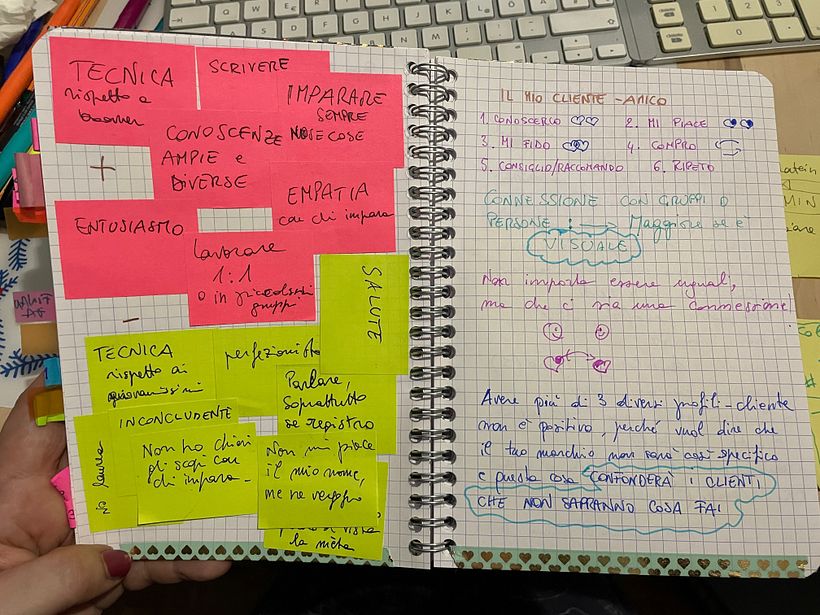 TECNICA
rispetto a
boomer
SCRIVERE
IMPARARE
SEMPRE
NUOVE COSE
CONOSCENZE
AMPIE e
DIVERSE
+
EMPATIA
con chi impara
ENTUSIASMO
Lavorare
1:1
o in piccolissimi
gruppi
-
SALUTE
TECNICA
rispetto ai
giovanissimi
perfezionista
Parlare,
soprattutto
se registro
INCONCLUDENTE
no laurea
Non ho chiari
gli scopi con
chi impara -
Non mi piace
il mio nome,
me ne vergogno
la mèta
IL MIO CLIENTE - AMICO
1. CONOSCERLO
2. MI PIACE
3. MI FIDO
4. COMPRO
5. CONSIGLIO/RACCOMANDO
6. RIPETO
CONNESSIONE CON GRUPPI D
PERSONE Maggiore se è
VISUALE
Non importa essere uguali,
ma che ci sia una connessione!
Avere più di 3 diversi profili-cliente
non è positivo, perché vuol dire che
il tuo marchio non sarà così specifico
e questa cosa CONFONDERÀ I CLIENTI
CHE NON SAPRANNO COSA FAI